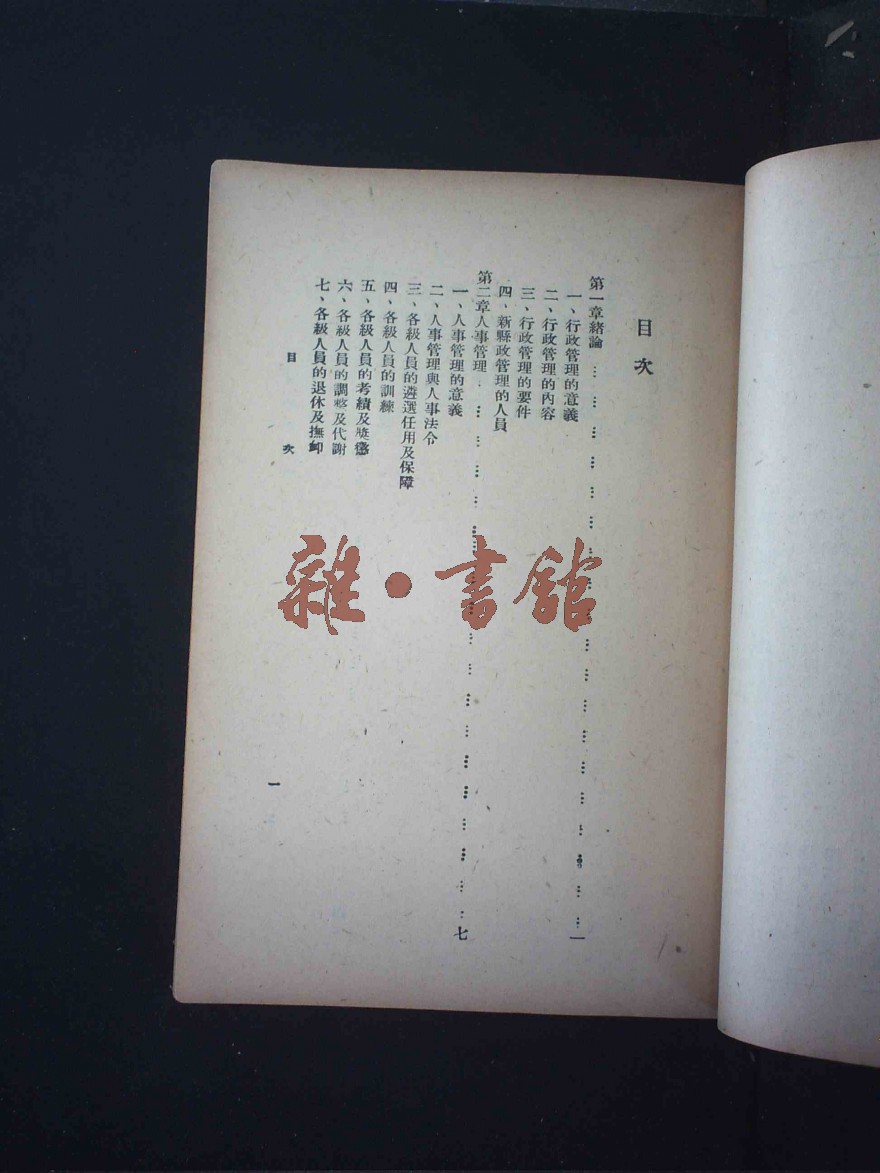 目次
第一章緒論 … … … … … … … … … … … … … … … … … … … … … 一
一、行政管理的意義
二、行政管理的內容
三、行政管理的要件
四、新縣政管理的人員
第二章人事管理 … … … … … … … … … … … … … … … … … … … 七
一、人事管理的意義
二、人事管理與人事法令
三、各級人員的遴選任用及保障
四、各級人員的訓練
五、各級人員的考績及奬懲
六、各級人員的調整及代謝
七、各級人員的退休及撫卹
目次
一
雜·書館